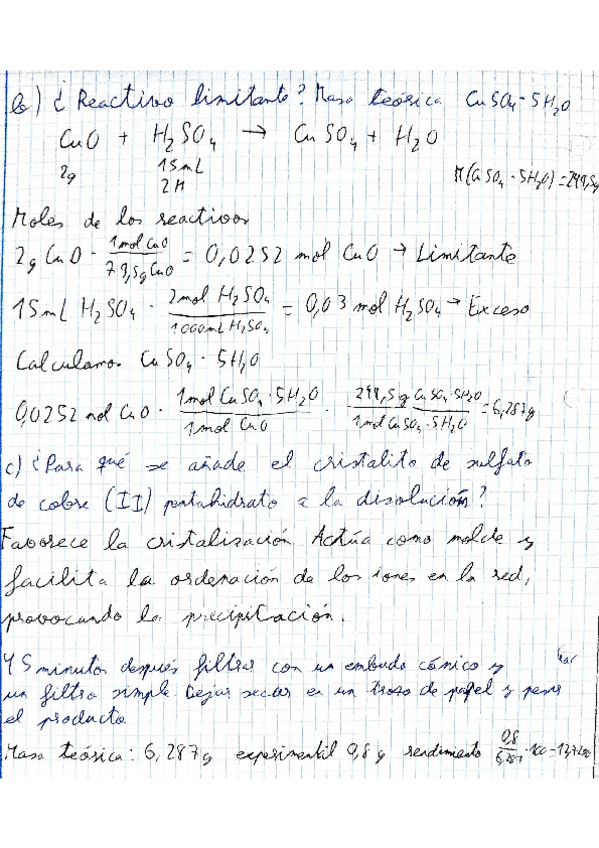 b) ¿Reactivo limitante? Masa teórica CuSO4 · 5H2O
CuO + H2SO4 → CuSO4 + H2O
2g 15mL
2M M(CuSO4 · 5H2O) = 249,5g
Moles de los reactivos
2g CuO · 1mol CuO / 79,5g CuO = 0,0252 mol CuO → Limitante
15mL H2SO4 · 2mol H2SO4 / 1000mL H2SO4 = 0,03 mol H2SO4 → Exceso
Calculamos CuSO4 · 5H2O
0,0252 mol CuO · 1mol CuSO4 · 5H2O / 1mol CuO · 249,5g CuSO4 · 5H2O / 1mol CuSO4 · 5H2O = 6,287g
c) ¿Para qué se añade el cristalito de sulfato
de cobre (II) pentahidrato a la disolución?
Favorece la cristalización. Actúa como molde y
facilita la ordenación de los iones en la red,
provocando la precipitación.
45 minutos después filtrar con un embudo cónico y
un filtro simple. Dejar secar en un trozo de papel y pesar
el producto
Masa teórica: 6,287g experimental 0,8g rendimiento 0,8 / 6,287 · 100 =